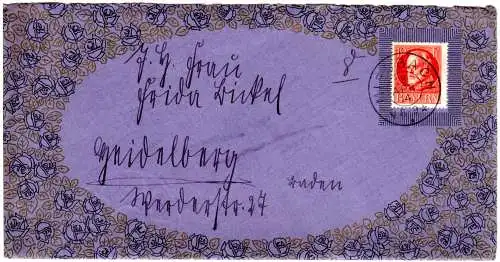 J. H. Frau
Frida Bickel
Heidelberg
Baden
Werderstr. 27
BAYERN